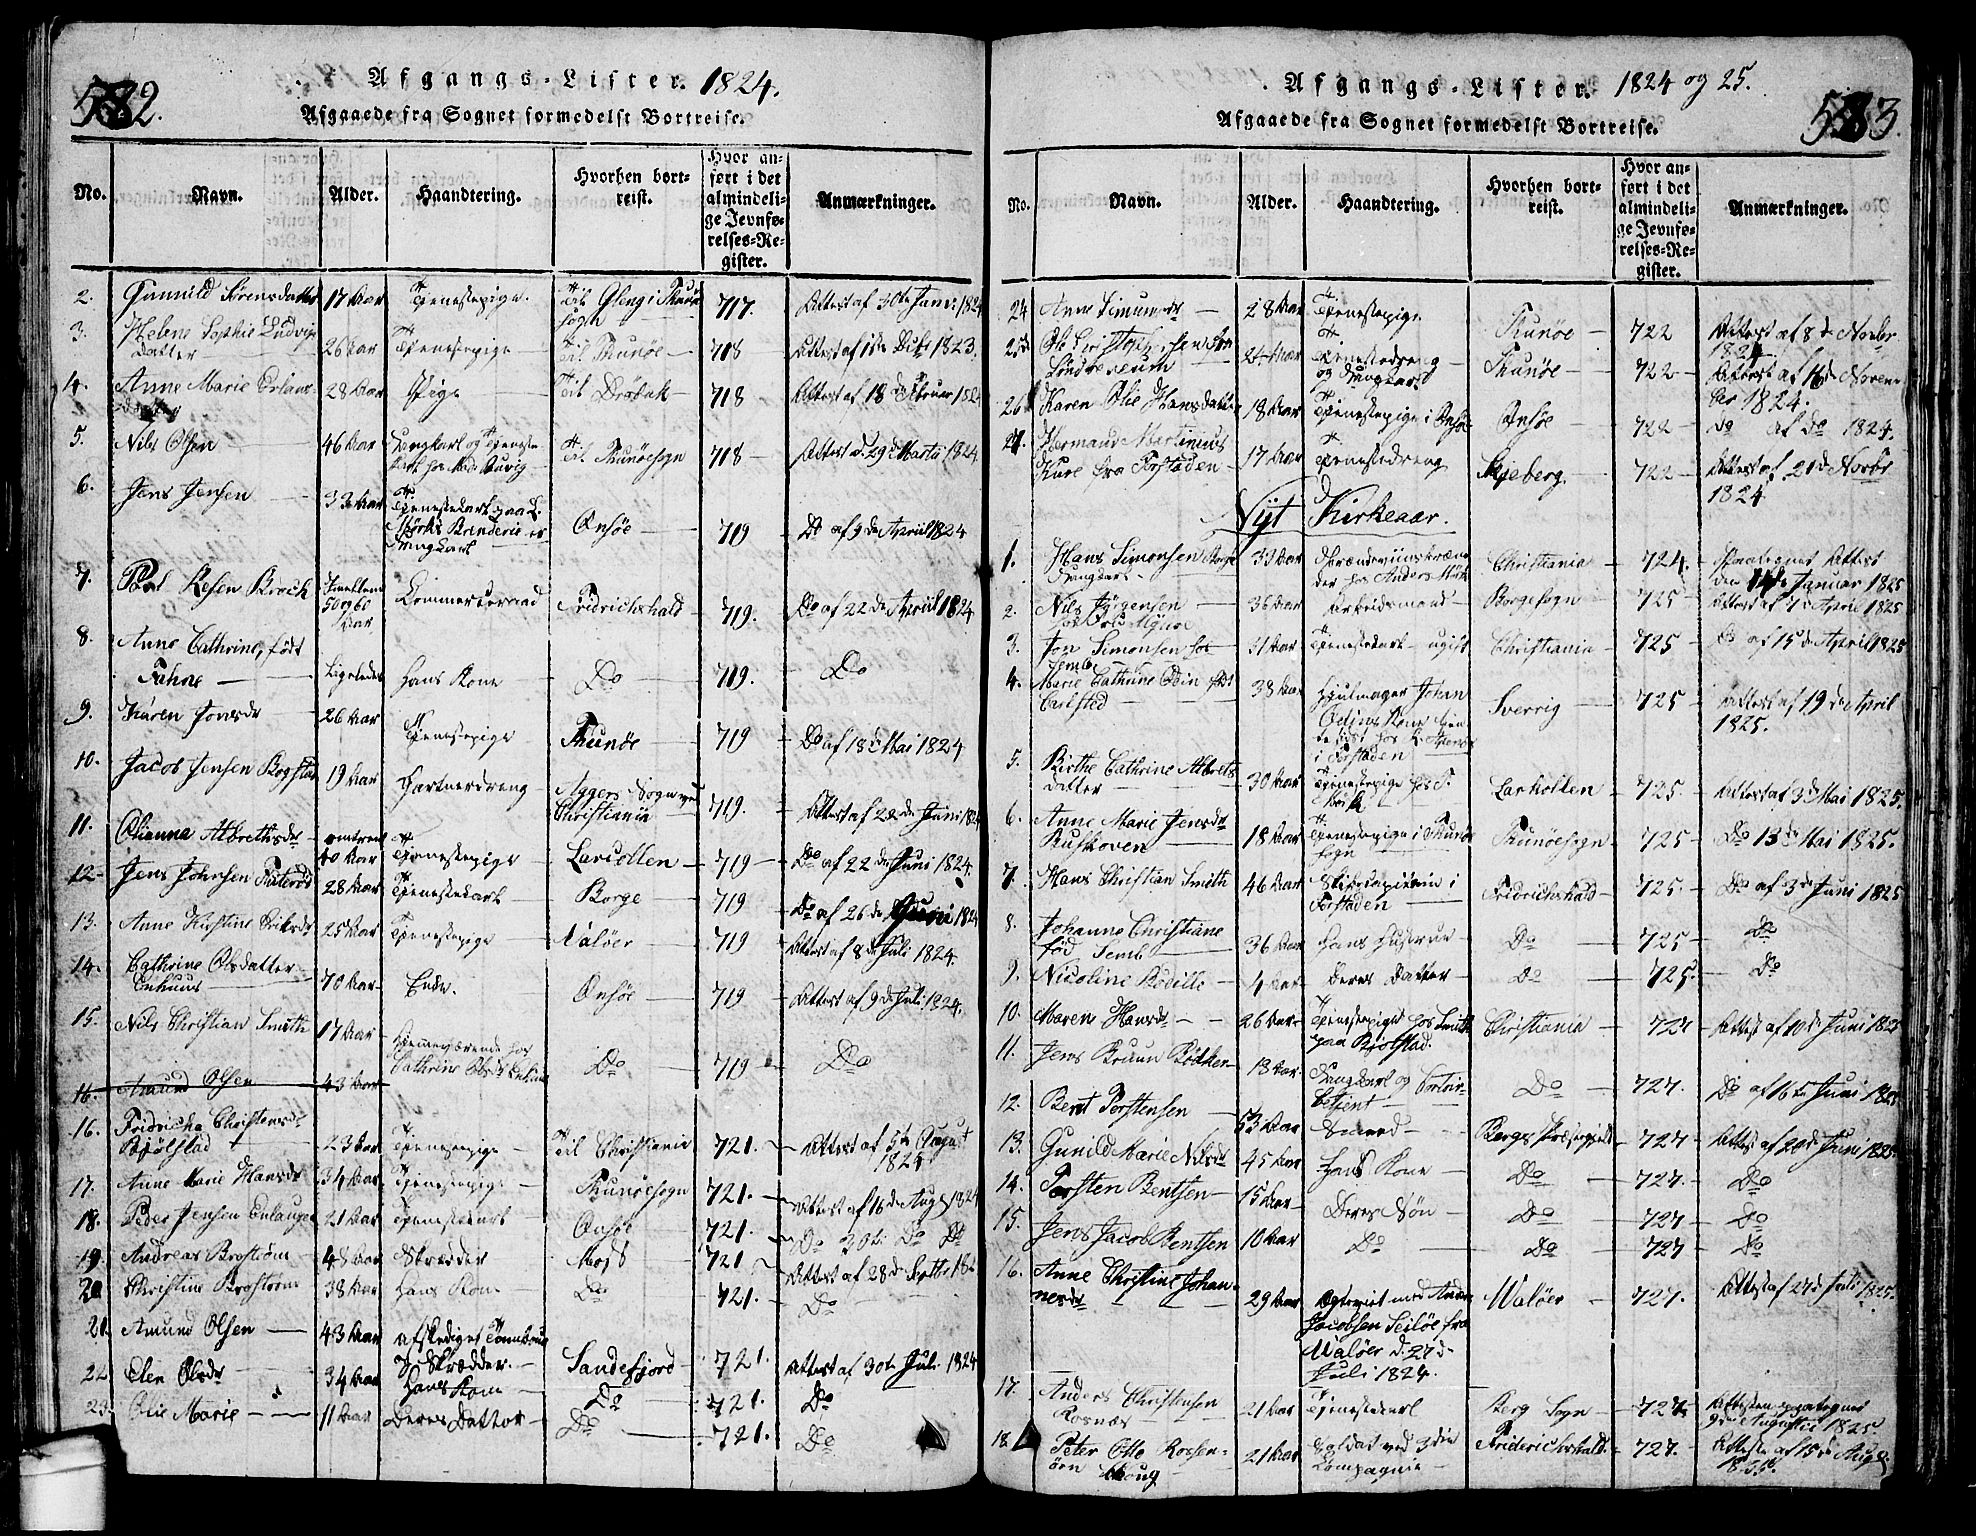 582.
Afgangs-Lister. 1824.
Afgaaede fra Sognet formedelst Bortreise.
No. Navn. Alder. Haandtering. Hvorhen bortreist. Hvor anført i det almindelige Jevnførelses-Register. Anmærkninger.
2. Gunnild Sørensdatter 17 Aar Tjenestepige Til Gleng i Thunesogn 717. Attest af 30te Janr 1824
3. Helene Sophie Ludvigsdatter 26 Aar Tjenestepige Til Thunøe 718 Attest af 1ste Dcbr 1823.
4. Anne Marie 28 Aar Pige Til Drøbak 718 Attest af 18de Februar 1824
5. Nils Olsen 46 Aar Til Thunøesogn 718 Attest d. 29de Marts 1824
6. Jens Jensen 33 Aar Tjenestekarl paa Brenderie Onsøe 719 Do af 9de April 1824
7. Resen Broch Imellem 50 og 60 Aar Commerceraad Fridrichshald 719. Do af 22de April 1824
8. Anne Cathrine, født Ligeledes Hans Kone Do 719. Do
9. Karen Jonsdr 26 Aar Tjenestepige Thunøe 719 Do af 18de Mai 1824
10. Jacob Jensen 19 Aar Gartnerdreng Aggers Sogn ved Christiania 719. Attest af 22de Juni 1824
11. Olianna Albrethsdr omtrent 40 Aar Tjenestepige Larcollen 719 Do af 22de Juni 1824.
12 Jens Johnsen 28 Aar Tjenestekarl Borge 719 Do af 26de Juni 1824
13. Anne Kirstine Eriksdr 25 Aar Tjenestepige Valøer 719 Attest af 8de Juli 1824.
14. Cathrine Olsdatter Enhuus 70 Aar Enke. Onsøe 719 Attest af 9de Juli 1824.
15. Nils Christian Smith 17 Aar Hjemmeværende hos Cathrine Olsdr Enhuus Do 719 Do
16. Amund Olsen 43 Aar
16. Fridricha Christensdr Bjølstad 23 Aar Tjenestepige Til Christiania 721. Attest af 5te August 1824
17. Anne Marie Hansdr 34 Aar Tjenestepige Thunøesogn 721. Attest af 16de Aug 1824
18. Peder Jensen 21 Aar Tjenestekarl Onsøe 721. Do 30te Do Do
19. Andreas Brostrøm 48 Aar Skrædder Moss 721 Attest af 28de Septbr 182
20 Christine Brostrøm 38 Aar Hans Kone Do 721. Do
21. Amund Olsen 43 Aar afskediget Skrædder. Sandefjord 721. Attest af 30te Juli 1824
22 Elen Olsdr 34 Aar Hans Kone Do 721. Do
23. Olie Marie 11 Aar Deres Datter Do 721. Do
Afgangs-Lister. 1824 og 25.
583.
Afgaaede fra Sognet formedelst Bortreise.
No. Navn. Alder. Haandtering. Hvorhen bortreist. Hvor anført i det almindelige Jevnførelses-Register. Anmærkninger.
24 Anne Simunsdr 28 Aar Tjenestepige Thunøe 722 Attest af 8de Novbr 1824
25 Ole 24 Aar Tjenestedreng Thunøe 722 Attest af 16de November 1824.
26 Karen Olie Hansdatter 18 Aar Tjenestepige i Onsøe Onsøe 722 do af do 1824.
27. Hermand Martinius Kure fra Forstaden 17 Aar Tjenestedreng Skjeberg 722 Attest af 21de Novbr 1824
Nyt Kirkeaar.
1. Hans Simonsen 33 Aar Christiania 724. Paategnet Attest den 14de Januar 1825
2. Nils Jørgensen 36 Aar Arbeidsmand Borgesogn 725 Attest af 7de April 1825
3. Jon Simonsen hos Semb 31 Aar Tjenestekarl ugift Christiania 725 Do af 15de April 1825
4. Marie Cathrine Odin født Carlsted 38 Aar Hjulmager Johan Odins Kone i Forstaden Sverrig 725 Attest af 19de April 1825.
5. Birthe Cathrine Albretsdatter 30 Aar Tjenestepige hos Larkollen 725. Attest af 3de Mai 1825.
6. Anne Marie Jensdr Buskoven 18 Aar Tjenestepige i Thunesogn Thunøesogn 725 Do 13de Mai 1825.
7. Hans Christian Smith 46 Aar Skibscapitain i Forstaden Fridrichshald 725. Do af 3de Juni 1825
8. Johanne Christiane fød Semb 36 Aar Hans Hustrue Do 725 Do
9. Nicoline Bodille 4 Aar Deres Datter Do 725. Do
10. Maren Hansdr 26 Aar Tjenestepige hos Smith paa Bjølstad. Christiania 727 Attest af 10de Juni 1825
11. Jens Bruun Bødtker 18 Aar Do 727. Do af 16de Juni 1825
12. Bent Torstensen 53 Aar Smed Berges Præstegjeld 727 Attest af 20de Juni 1825.
13. Gunild Marie Nilsdr 45 Aar Hans Kone Do 727. Do
14. Torsten Bentsen 15 Aar Deres Søn Do 727 Do
15. Jens Jacob Bentsen 10 Aar Do Do 727 Do
16. Anne Christine Johannesdr 29 Aar Egteviet med Anders Jacobsen Seiløe fra Waløer d. 27de Juli 1824. Waløer 727. Attest af 27de Juli 1825.
17. Anders Christensen Rosnæs 21 Aar Tjenestekarl Berg Sogn 727 Attesten paategnet 9de August 1825.
18. Peter Otto Rosenørn Houg 21 Aar Soldat ved 3die Compagnie Friderichshald 727. Attest af 15de Aug 1825.